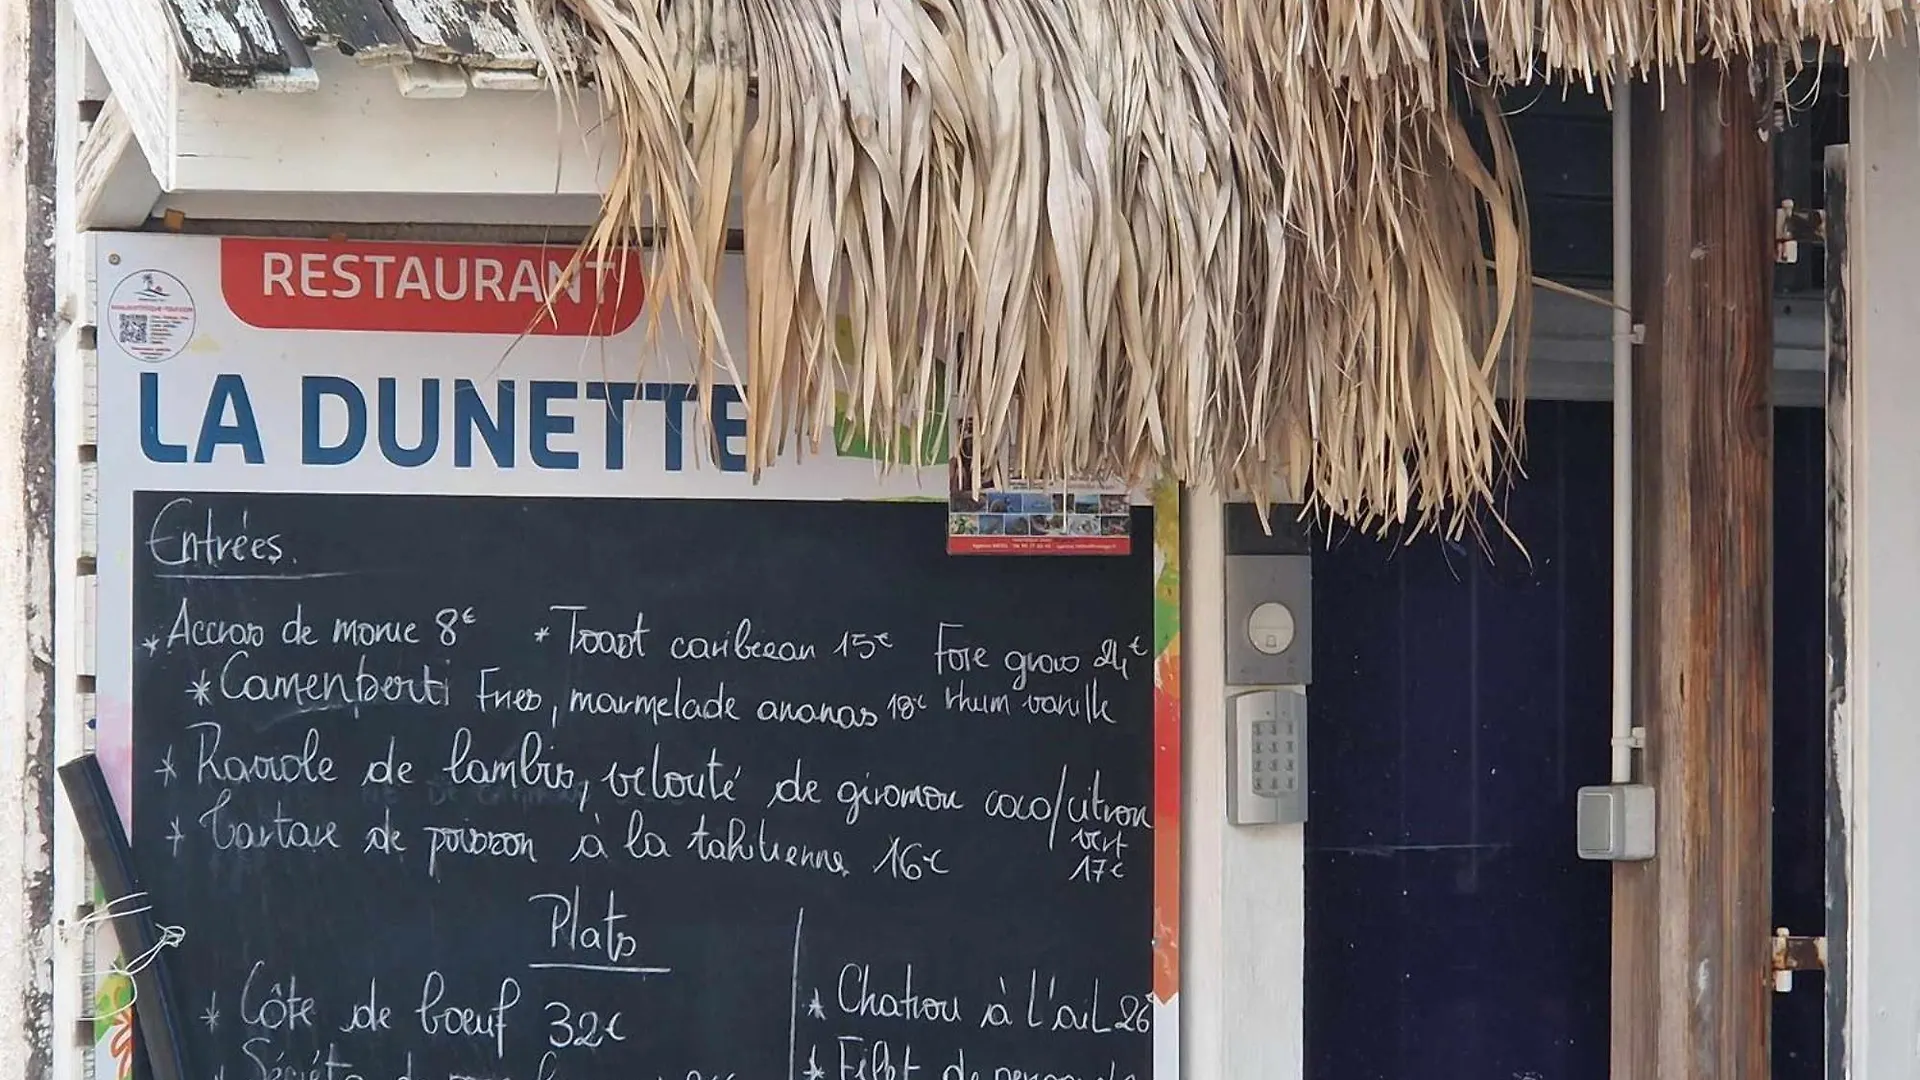 RESTAURANT
LA DUNETTE
Entrées.
* Accras de morue 8€ * Toast caribéean 15€ Foie gras 24€
* Camembert Fries, marmelade ananas 18€ rhum vanille
* Raviole de lambis, velouté de giromon coco/citron
vert
* Tartare de poisson à la tahitienne 16€ 17€
Plats
* Côte de boeuf 32€
* Chatrou à L'ail 26€
* Filet de